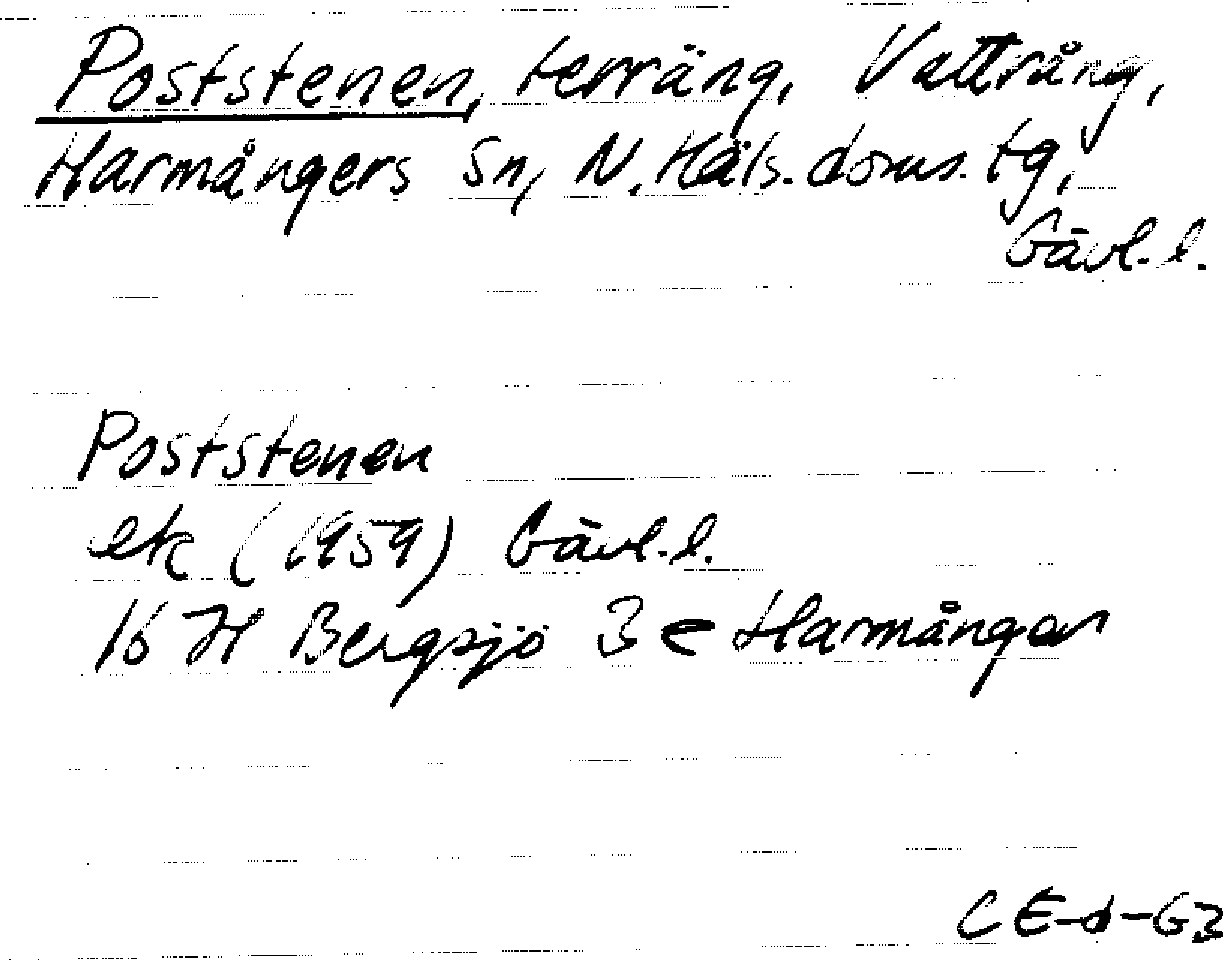 Poststenen, terräng, Vattrång,
Harmångers Sn, N. Häls. doms. tg,
Gävl. l.
Poststenen
ek (1959) Gävl. l.
16 H Bergsjö 3 e Harmånger
C E-d-G3